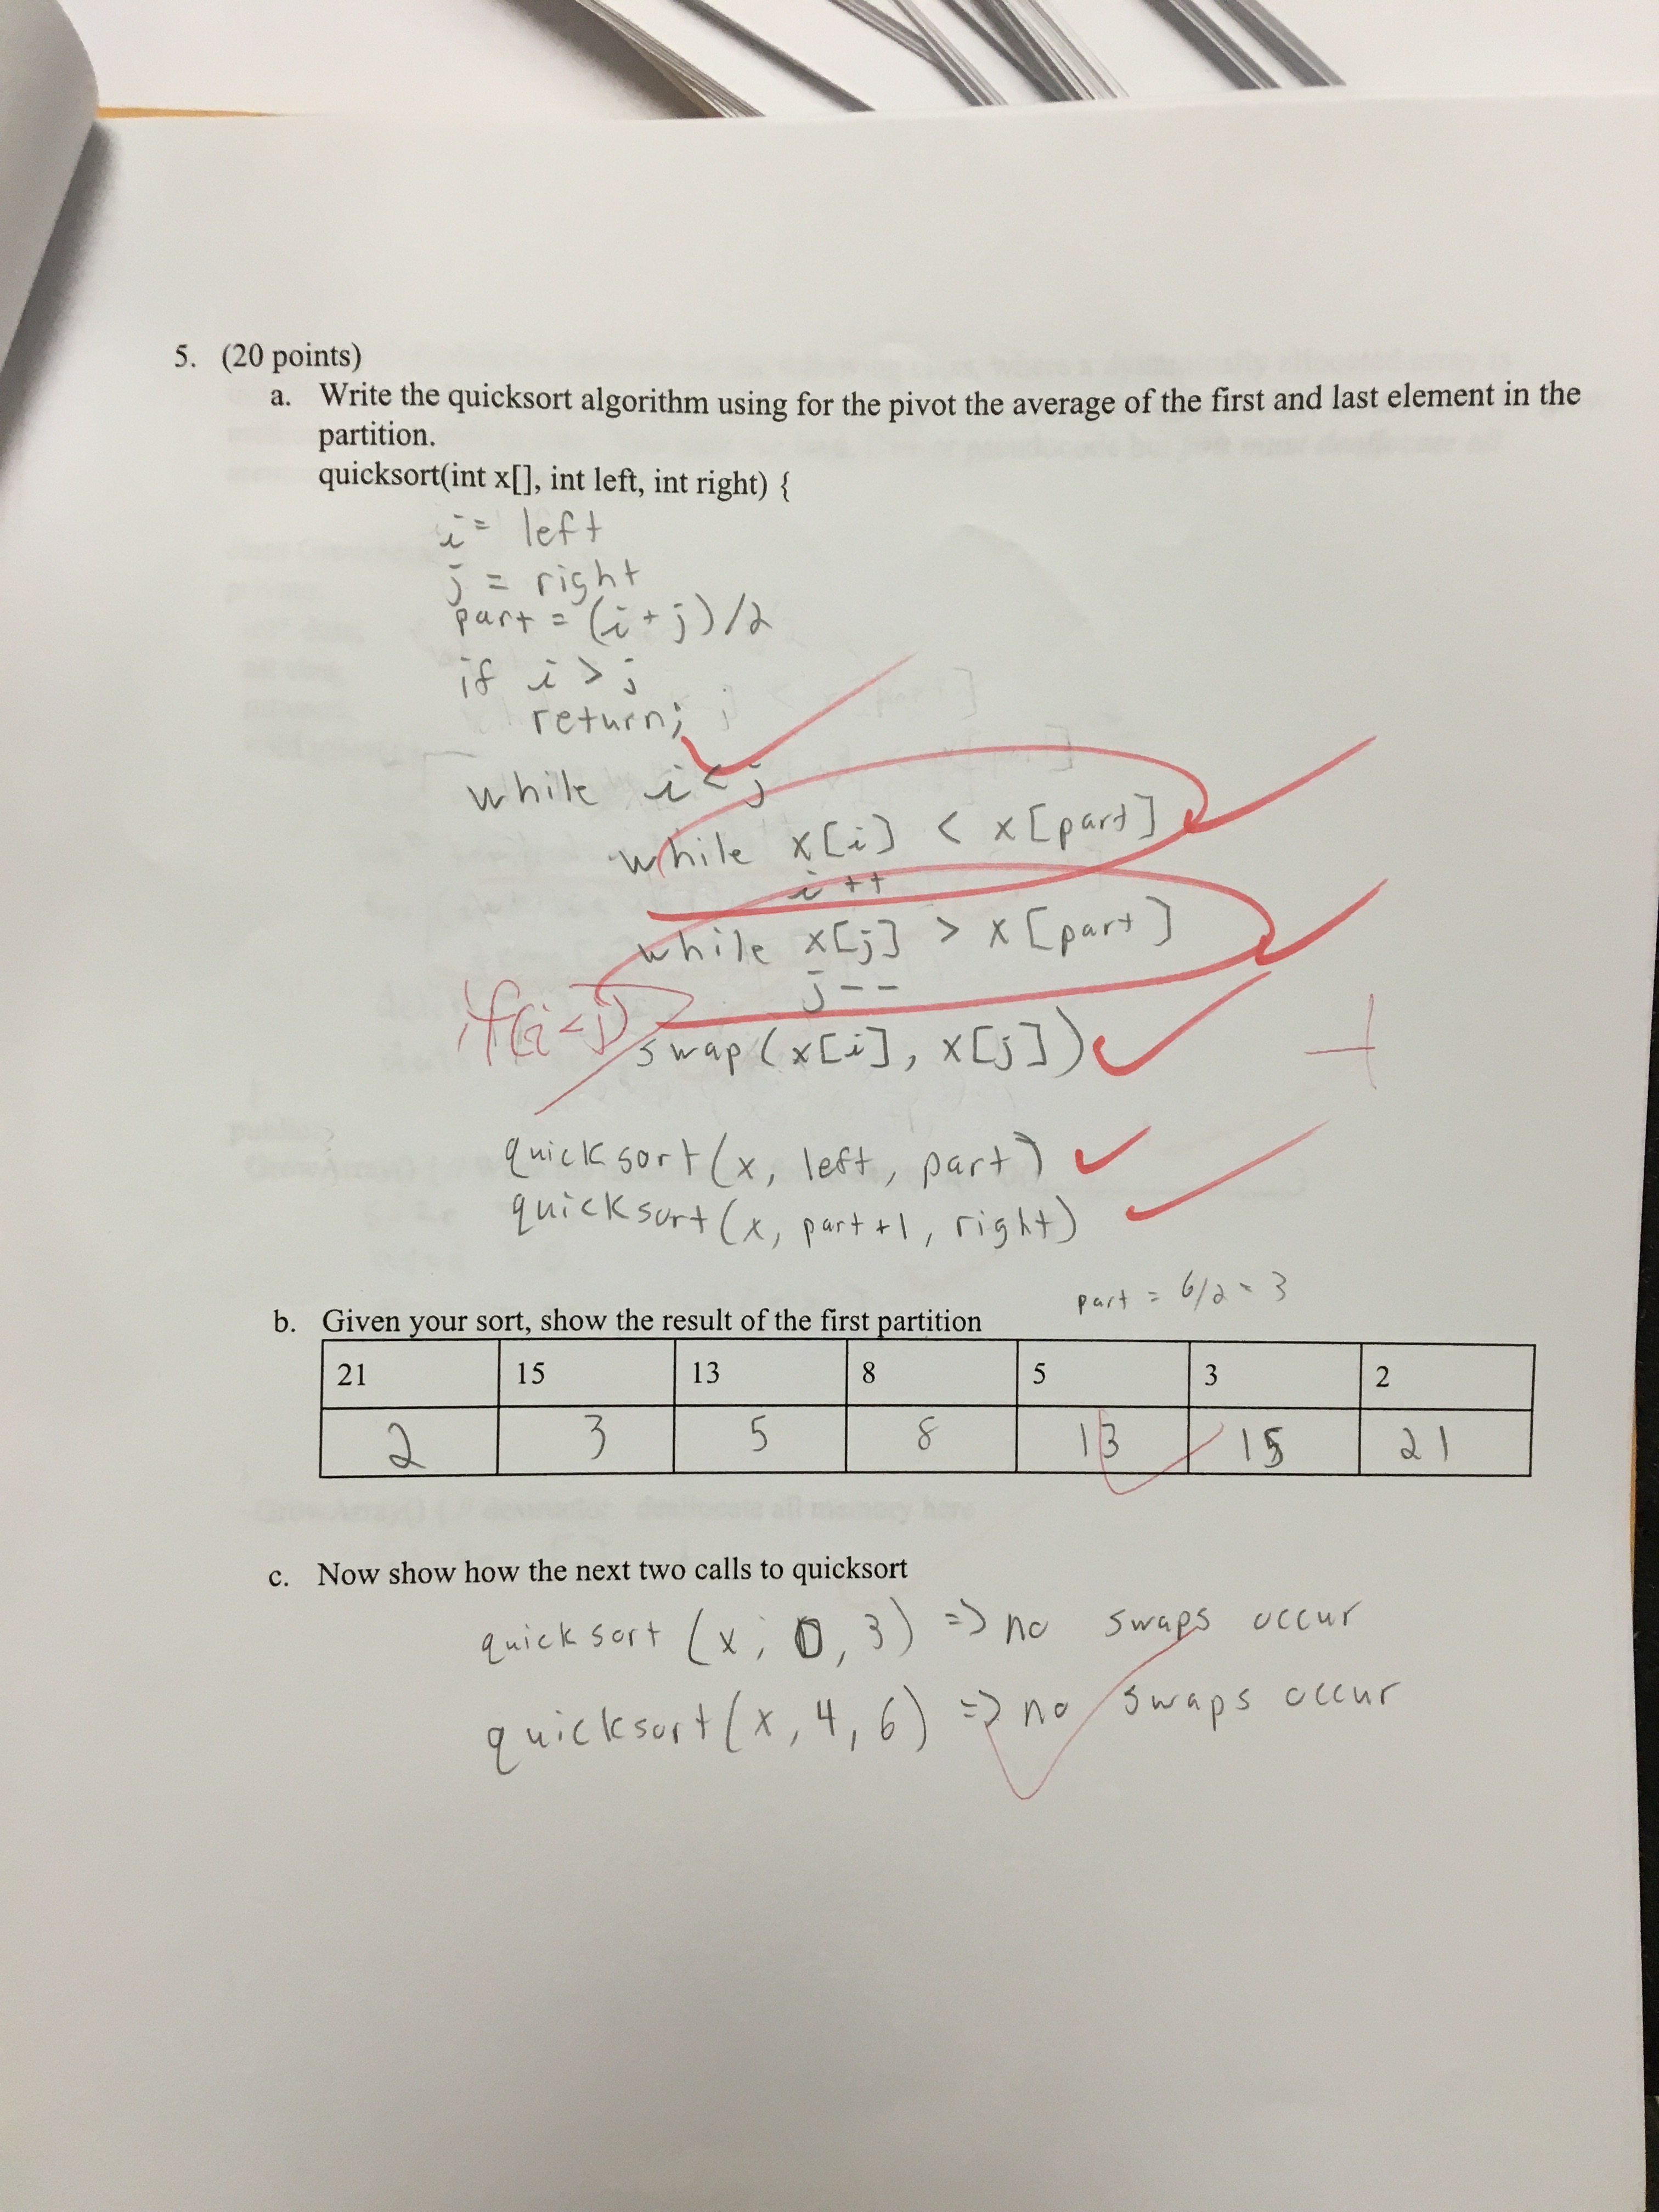 5. (20 points)
a. Write the quicksort algorithm using for the pivot the average of the first and last element in the
partition.
quicksort(int x[], int left, int right) {
i = left
j = right
part = (i + j)/2
if i > j
return;
while i < j
while x[i] < x[part]
i ++
while x[j] > x[part]
j --
if(i<j)
swap(x[i], x[j])
quicksort(x, left, part)
quicksort(x, part+1, right)
part = 6/2 = 3
b. Given your sort, show the result of the first partition
21 15 13 8 5 3 2
2 3 5 8 13 15 21
c. Now show how the next two calls to quicksort
quicksort (x, 0, 3) => no swaps occur
quicksort(x, 4, 6) => no swaps occur